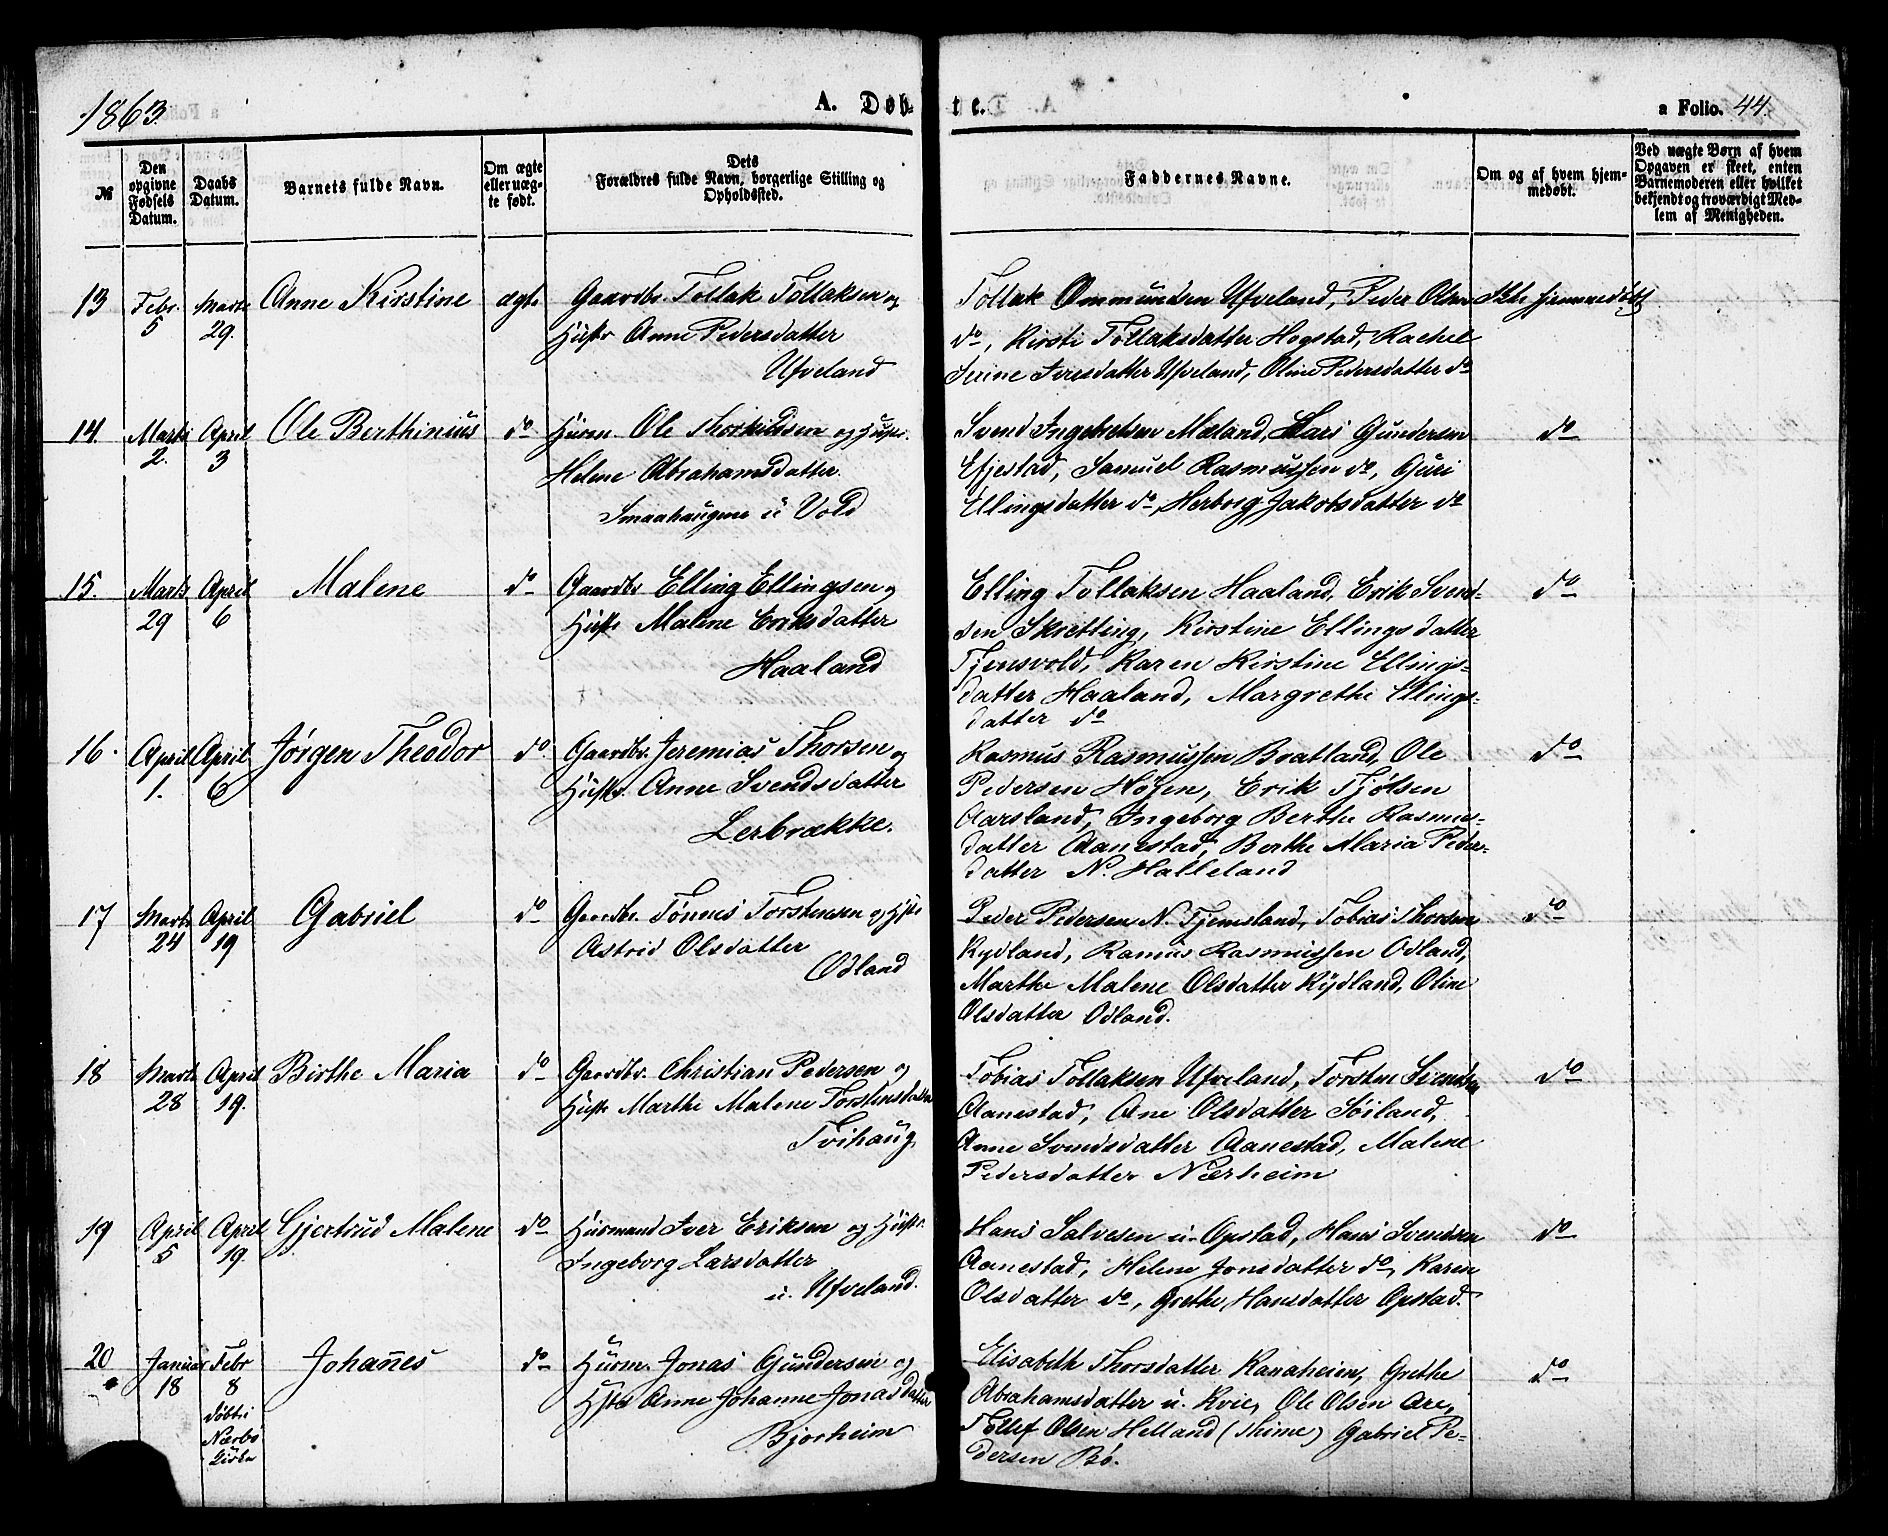 1863.
A. Døb-
te.
a Folio. 44.
№
Den opgivne Fødsels Datum.
Daabs Datum.
Barnets fulde Navn.
Om ægte eller uæg-te født.
Dets Forældres fulde Navn, borgerlige Stilling og Opholdssted.
Faddernes Navne.
Om og af hvem hjem-medøbt.
Ved uægte Børn af hvem Opgaven er skeet, enten Barnemoderen eller hvilket bekjendt og troværdigt Med-lem af Menigheden.
13 Febr. 5 Marts 29. Anne Kirstine ægte
Gaardbr. Tollak Tollaksen og
Hustr Anne Pedersdatter
Ufveland
Tollak Ommundsen Ufveland, Peder Olsen
do, Kirsti Tollaksdatter Hogstad, Rachel
Serine Iversdatter Ufveland, Oline Pedersdatter do
Ikke hjemmedøbt
14. Marts 2. April 3 Ole Berthinius do
Husm. Ole Thorkildsen og Hustr.
Helene Abrahamsdatter.
Smaahaugene u Vold
Svend Ingebretsen Mæland, Lars Gundersen
Efjestad, Samuel Rasmussen do, Guri
Ellingsdatter do, Herborg Jakobsdatter do
do
15. Marts 29 April 6 Malene do
Gaardbr. Elling Ellingsen og
Hustr Malene Eriksdatter
Haaland
Elling Tollaksen Haaland, Erik Svend-
sen Skretting, Kirstine Ellingsdatter
Tjensvold, Karen Kirstine Ellings-
datter Haaland, Margrethe Ellings-
datter do
do
16. April 1. April 6 Jørgen Theodor do
Gaardbr. Jeremias Thorsen og
Hustr. Anne Svendsdatter
Lerbrække.
Rasmus Rasmussen Bratland, Ole
Pedersen Høien, Erik Tjølsen
Aarsland, Ingeborg Berthe Rasmus-
datter Aanestad, Berthe Maria Peders-
datter N. Halleland
do
17 Marts 24 April 19 Gabriel do
Gaardbr. Tønnes Torstensen og Hstr
Astrid Olsdatter
Odland
Peder Pedersen N. Tjemsland, Tobias Thorsen
Rydland, Ramus Rasmussen Odland,
Marthe Malene Olsdatter Rydland, Oline
Olsdatter Odland.
do
18 Marts 28 April 19. Birthe Maria do
Gaardbr. Christian Pedersen og
Hustr Marthe Malene Torstensdatter
Tvihaug
Tobias Tollaksen Ufveland, Torsten Svendsen
Aanestad, Ane Olsdatter Søiland,
Anne Svendsdatter Aanestad, Malene
Pedersdatter Nærheim
do
19 April 5 April 19. Gjertrud Malene do
Husmand Iver Eriksen og Hustr.
Ingeborg Larsdatter
u. Ufveland.
Hans Salvesen u. Opstad, Hans Svendsen
Aanestad, Helene Jonsdatter do, Karen
Olsdatter do, Grethe Hansdatter Opstad.
do
20 Januar 18 Febr 8 døbt i Nærbø Kirke Johañes do
Husm. Jonas Gundersen og
Hstr Anne Johanne Jonasdatter
Bjorheim
Elisabeth Thorsdatter Kanaheien, Grethe
Abrahamsdatter u. Kvie, Ole Olsen Are,
Tollef Olsen Helland (Thime) Gabriel Pe-
dersen Bø.
do